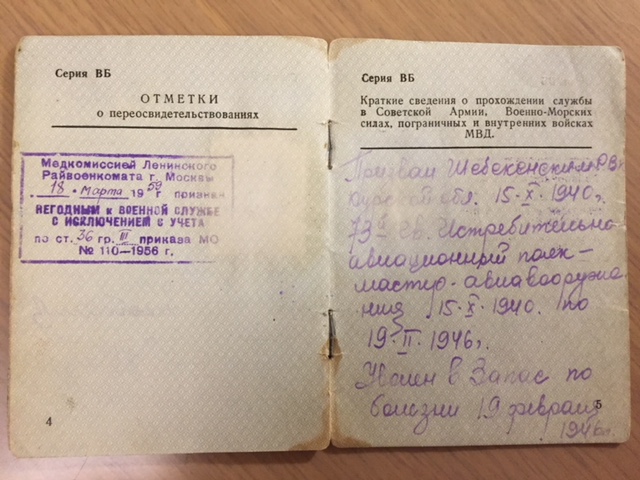 Серия ВБ
ОТМЕТКИ
о переосвидетельствованиях
Медкомиссией Ленинского
Райвоенкомата г. Москвы
18 · марта 1959 г. признан
НЕГОДНЫМ к ВОЕННОЙ СЛУЖБЕ
С ИСКЛЮЧЕНИЕМ С УЧЕТА
по ст. 36 гр. III приказа МО
№ 110—1956 г.
4
Серия ВБ
Краткие сведения о прохождении службы
в Советской Армии, Военно-Морских
силах, пограничных и внутренних войсках
МВД.
Призван Шебекенским РВК
Курской обл. 15·X·1940г.
73й Гв. Истребительно
авиационный полк —
мастер авиавооруже
ния 15·X·1940. по
19·II·1946г.
Уволен в Запас по
болезни 19 февраля
1946г.
5